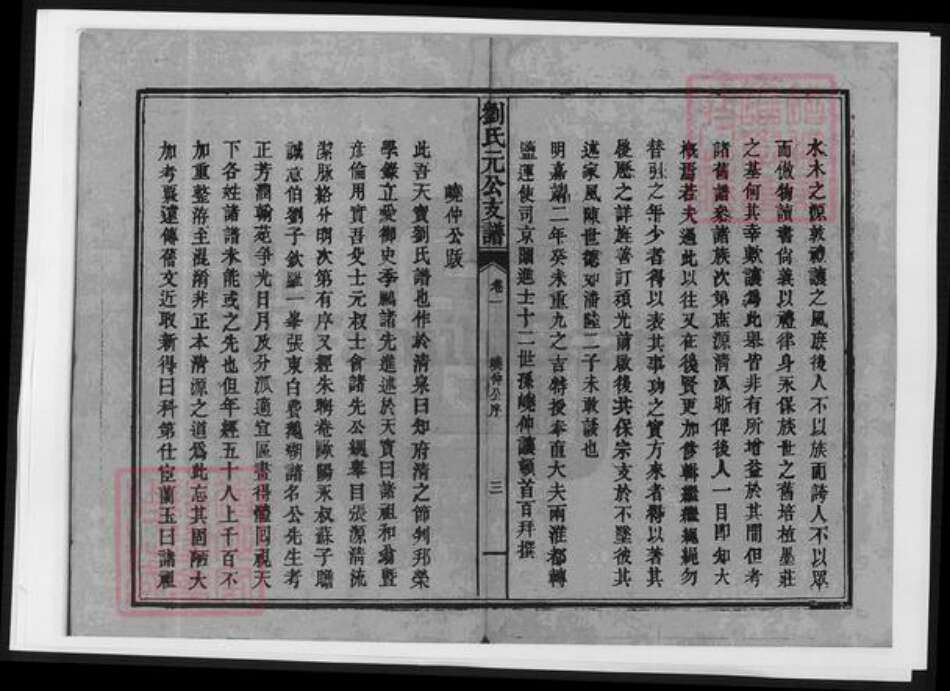 水木之源敦禮讓之風庶後人不以族而誇人不以眾
而傲物讀書尚義以禮律身永保族世之舊培植墨莊
之基何其幸歟讓為此舉皆非有所增益於其間但考
諸舊譜叅諸族次第庶源清派晰俾後人一目即知大
槩焉若夫過此以往又在後賢更加修輯繼繼繩繩勿
替引之年少者得以表其事功之實方來者得以著其
履歷之詳旌善訂頑光前啟後共保宗支於不墜彼其
述家風陳世德如潘陸二子未敢談也
明嘉靖二年癸未重九之吉特授奉直大夫兩淮都轉
鹽運使司京闈進士十二世孫嶢仲讓頓首百拜撰
劉氏元公支譜
卷一
嶢仲公序
三
嶢仲公䟦
此吾天寶劉氏譜也作於清泉曰知府清之節判邦榮
學錄立愛御史季鵬諸先進述於天寶曰諸祖和翁暨
彥倫用實吾父士元叔士會諸先公綱舉目張源清流
潔脉絡分明次第有序又經朱晦菴歐陽永叔蘇子瞻
誠意伯劉子欽羅一峯張東白費鵝湖諸名公先生考
正芳潤翰苑爭光日月及分派適宜區畫得體回視天
下各姓諸譜未能或之先也但年經五十人上千百不
加重整滸主混淆非正本清源之道為此忘其固陋大
加考襲遠傳舊文近取新得曰科第仕宦蘭玉曰諸祖